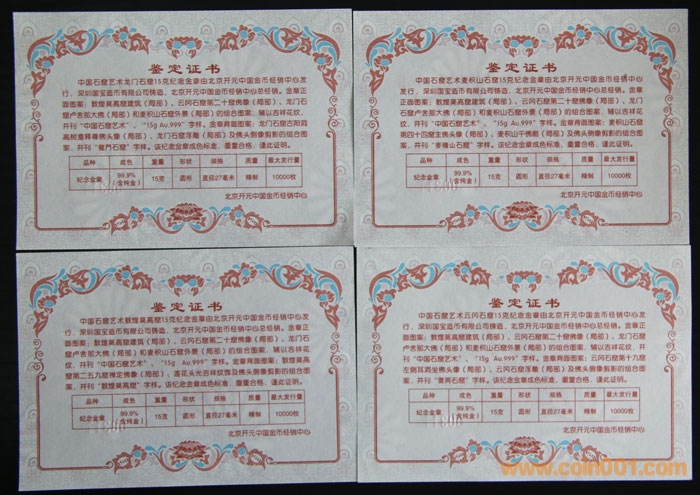 鉴定证书
中国石窟艺术龙门石窟15克纪念金章由北京开元中国金币经销中心发
行，深圳国宝造币有限公司铸造，北京开元中国金币经销中心总经销。金章正
面图案：敦煌莫高窟建筑（局部）、云冈石窟第二十窟佛像（局部）、龙门石
窟卢舍那大佛（局部）和麦积山石窟外景（局部）的组合图案，辅以吉祥花纹，
并刊“中国石窟艺术”、“15g Au.999”字样。金章背面图案：龙门石窟古阳洞
高树龛释尊佛头像（局部）、龙门石窟浮雕（局部）及佛头侧像剪影的组合图
案，并刊“龍門石窟”字样。该纪念金章成色标准，重量合格，谨此证明。
品种 成色 重量 形状 规格 质量 最大发行量
纪念金章 99.9%（含纯金） 15克 圆形 直径27毫米 精制 10000枚
北京开元中国金币经销中心
鉴定证书
中国石窟艺术麦积山石窟15克纪念金章由北京开元中国金币经销中心
发行，深圳国宝造币有限公司铸造，北京开元中国金币经销中心总经销。金章
正面图案：敦煌莫高窟建筑（局部）、云冈石窟第二十窟佛像（局部）、龙门
石窟卢舍那大佛（局部）和麦积山石窟外景（局部）的组合图案，辅以吉祥花
纹，并刊“中国石窟艺术”、“15g Au.999”字样。金章背面图案：麦积山石窟
第四十四窟主佛头像（局部）、麦积山千佛廊（局部）及佛头侧像剪影的组合图
案，并刊“麥積山石窟”字样。该纪念金章成色标准，重量合格，谨此证明。
品种 成色 重量 形状 规格 质量 最大发行量
纪念金章 99.9%（含纯金） 15克 圆形 直径27毫米 精制 10000枚
北京开元中国金币经销中心
鉴定证书
中国石窟艺术敦煌莫高窟15克纪念金章由北京开元中国金币经销中心发
行，深圳国宝造币有限公司铸造，北京开元中国金币经销中心总经销。金章正
面图案：敦煌莫高窟建筑（局部）、云冈石窟第二十窟佛像（局部）、龙门石窟
卢舍那大佛（局部）和麦积山石窟外景（局部）的组合图案，辅以吉祥花纹，
并刊“中国石窟艺术”、“15g Au.999”字样。金章背面图案：敦煌莫高
窟第二五九窟禅定佛像（局部）、莲花头光吉祥纹饰及佛头侧像剪影的组合图案，
并刊“敦煌莫高窟”字样。该纪念金章成色标准，重量合格，谨此证明。
品种 成色 重量 形状 规格 质量 最大发行量
纪念金章 99.9%（含纯金） 15克 圆形 直径27毫米 精制 10000枚
北京开元中国金币经销中心
鉴定证书
中国石窟艺术云冈石窟15克纪念金章由北京开元中国金币经销中心发
行，深圳国宝造币有限公司铸造，北京开元中国金币经销中心总经销。金章正
面图案：敦煌莫高窟建筑（局部）、云冈石窟第二十窟佛像（局部）、龙门石窟
卢舍那大佛（局部）和麦积山石窟外景（局部）的组合图案，辅以吉祥花纹，
并刊“中国石窟艺术”、“15g Au.999”字样。金章背面图案：云冈石窟第十九窟
左侧耳洞坐佛头像（局部）、云冈石窟浮雕（局部）及佛头侧像剪影的组合图
案，并刊“雲岡石窟”字样。该纪念金章成色标准，重量合格，谨此证明。
品种 成色 重量 形状 规格 质量 最大发行量
纪念金章 99.9%（含纯金） 15克 圆形 直径27毫米 精制 10000枚
北京开元中国金币经销中心
www.coin001.com